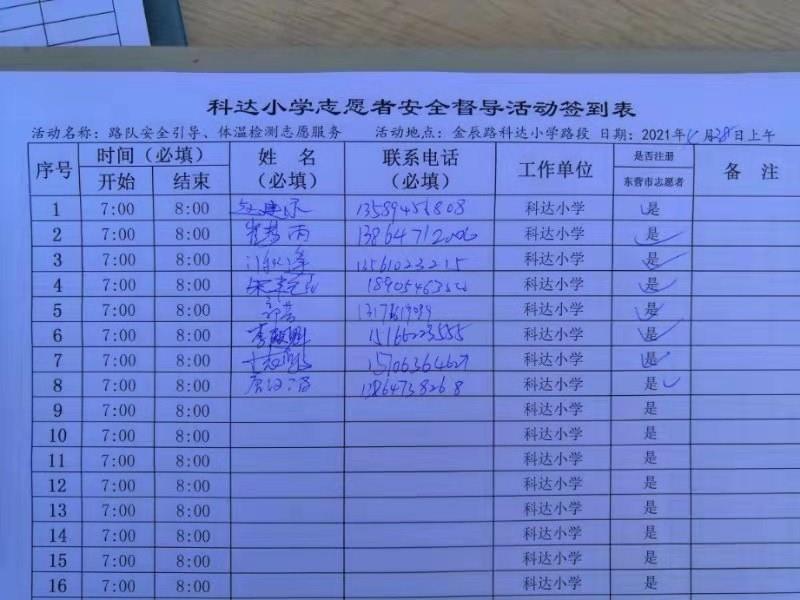 科达小学志愿者安全督导活动签到表
活动名称：路队安全引导、体温检测志愿服务 活动地点：金辰路科达小学路段 日期：2021年 月28日上午
序号 时间（必填） 姓 名（必填） 联系电话（必填） 工作单位 是否注册东营市志愿者 备 注
开始 结束
1 7:00 8:00 科达小学 是
2 7:00 8:00 科达小学 是
3 7:00 8:00 13561023215 科达小学 是
4 7:00 8:00 科达小学 是
5 7:00 8:00 科达小学 是
6 7:00 8:00 15166223555 科达小学 是
7 7:00 8:00 15706364627 科达小学 是
8 7:00 8:00 13864738268 科达小学 是
9 7:00 8:00 科达小学 是
10 7:00 8:00 科达小学 是
11 7:00 8:00 科达小学 是
12 7:00 8:00 科达小学 是
13 7:00 8:00 科达小学 是
14 7:00 8:00 科达小学 是
15 7:00 8:00 科达小学 是
16 7:00 8:00 科达小学 是